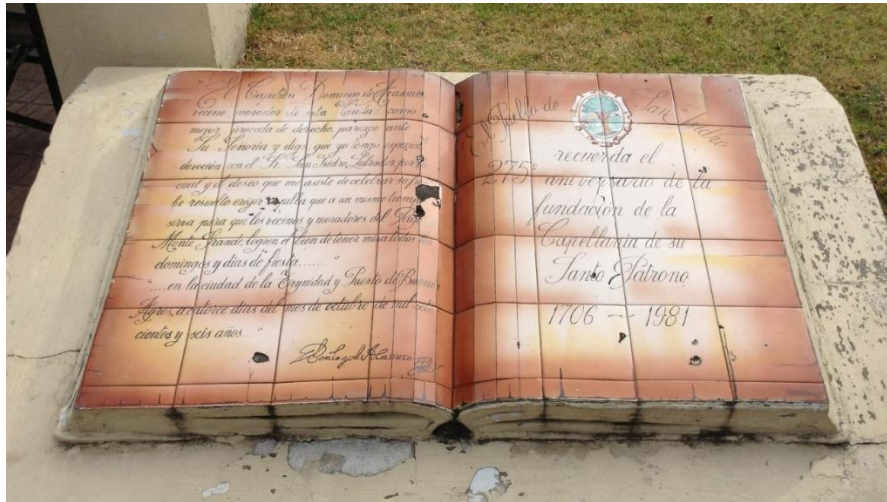 "El Capitán Domingo de Acassuso
vecino morador de esta Ciudad como
mejor proceda de derecho, parezco ante
Su Señoría y digo, que yo tengo especial
devoción con el Sr. San Isidro, Labrador por lo
cual y el deseo que me asiste de celebrar su
he resuelto erigir capilla que a un mismo tiempo
sirva para que los vecinos y moradores del Pago
Monte Grande, logren el bien de tener misa todos los
domingos y días de fiesta......"
"....en la ciudad de la Trynidad y Puerto de Buenos
Ayres, a catorce días del mes de octubre de mil sete
cientos y seis años..."
Domingo de Acassuso
El Pueblo de San Isidro
recuerda el
275º aniversario de la
fundación de la
Capellanía de su
Santo Patrono
1706 — 1981